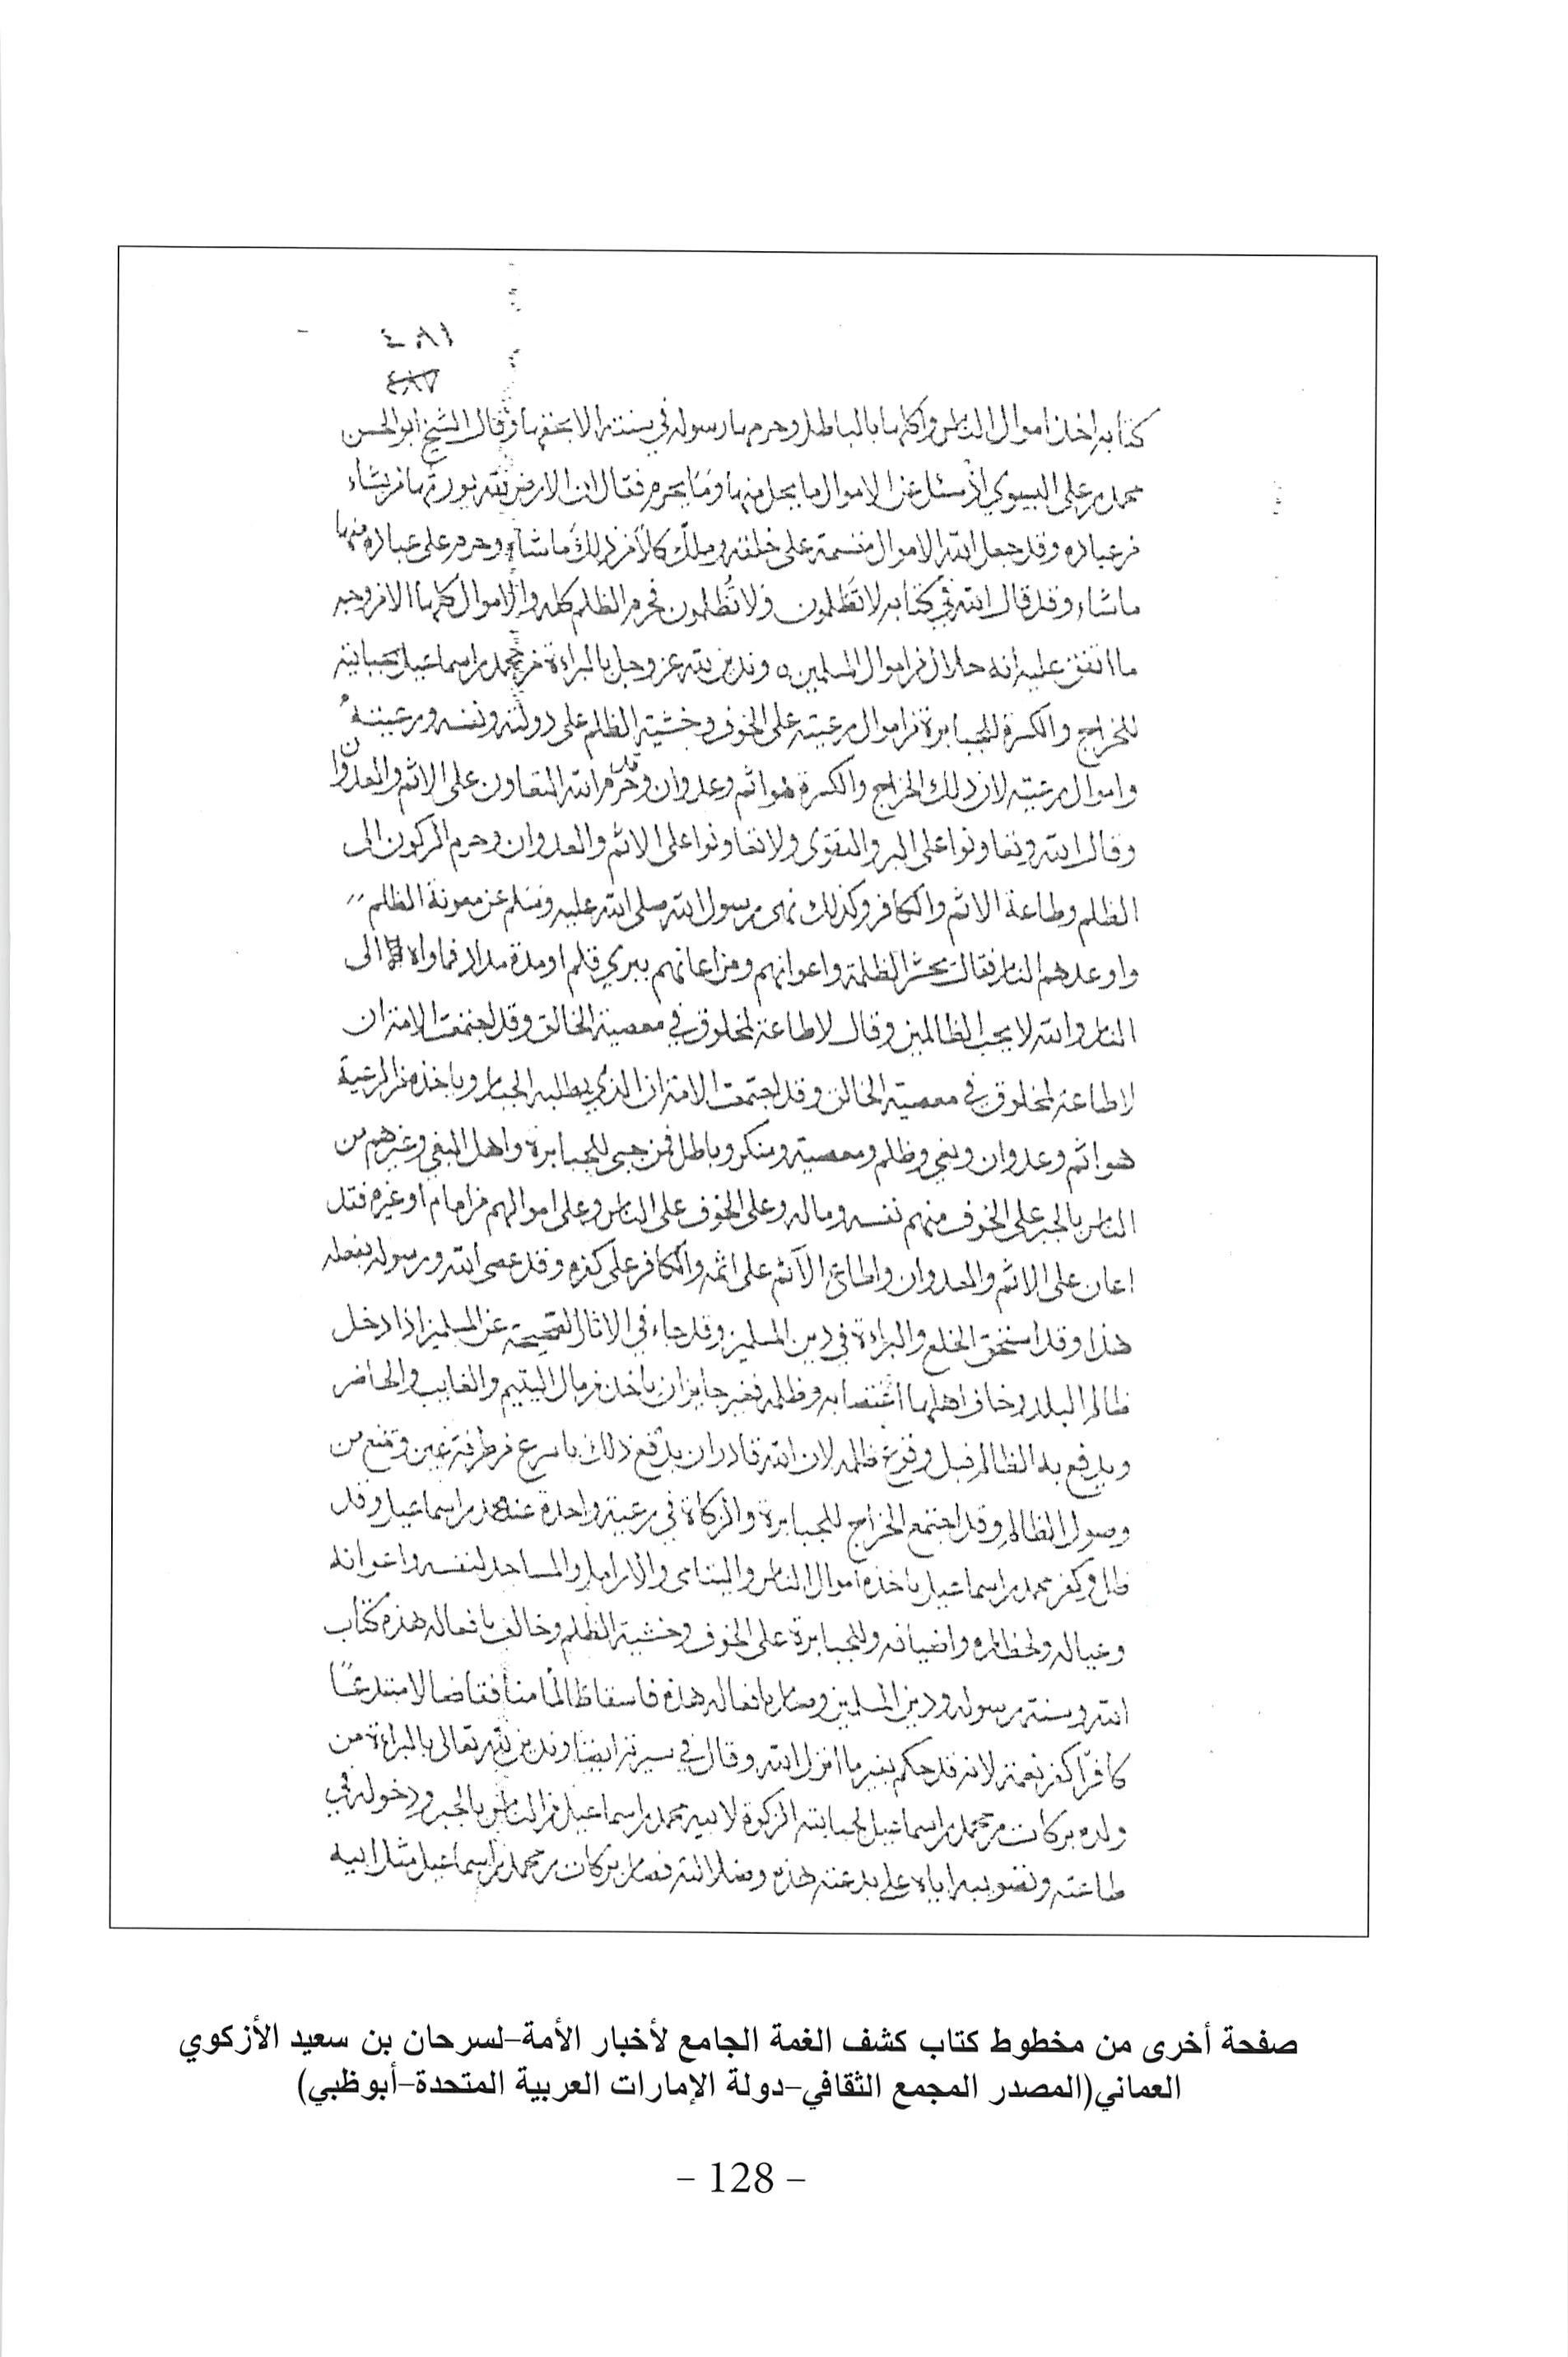 ٤٨١
٤٨٧
كتابه اخذ اموال الناس واكلها بالباطل وحرمها رسوله في سنته الا بحقها وقال الشيخ ابو الحسن
محمد بن علي البسيوي اذ سئل عن الاموال ما يحل منها وما يحرم فقال ان الارض لله يورثها من يشاء
من عباده وقد جعل الله الاموال مقسمة على خلقه وملك كلا من ذلك ما شاء وحرم على عباده منها
ما شاء وقد قال الله في كتابه لا تَظلمون ولا تُظلمون فحرم الظلم كله والاموال كلها الا من وجه
ما اتفق عليه انه حلال من اموال المسلمين وندين لله عز وجل بالبراءة من محمد بن اسماعيل بجبايته
للخراج والكسرة للجبابرة من اموال رعيته على الخوف وخشية الظلم على دولته ونفسه ورعيته
واموال رعيته لان ذلك الخراج والكسرة هو اثم وعدوان وقد حرم الله التعاون على الاثم والعدوان
وقال الله وتعاونوا على البر والتقوى ولا تعاونوا على الاثم والعدوان وحرم الركون الى
الظلم وطاعة الاثم والكافر وكذلك نهى رسول الله صلى الله عليه وسلم عن معونة الظلم
واوعدهم النار فقال يحشر الظلمة واعوانهم ومن اعانهم ببري قلم او مدة مداد فماواه الى
النار والله لا يحب الظالمين وقال لا طاعة لمخلوق في معصية الخالق وقد اجتمعت الامة ان
لا طاعة لمخلوق في معصية الخالق وقد اجتمعت الامة ان الذي يطلبه الجبار وياخذه من الرعية
هو اثم وعدوان وبغي وظلم ومعصية ومنكر وباطل فمن جبى للجبابرة واهل البغي وغيرهم من
الناس بالجبر على الخوف منهم نفسه وماله وعلى الخوف على الناس وعلى اموالهم من امام او غيره فقد
اعان على الاثم والعدوان واطاع الآثم على اثمه والكافر على كفره وقد عصى الله ورسوله بفعله
هذا وقد استحق الخلع والبراءة في دين المسلمين وقد جاء في الاثار الصحيحة عن المسلمين اذا دخل
ظالم البلد وخاف اهلها اغتصابه وظلمه فغير جايز ان ياخذ من مال اليتيم والغايب والحاضر
ويدفع به الظالم قبل وقوع ظلمه لان الله قادر ان يدفع ذلك باسرع من طرفة عين وتمنع من
وصول الظالم وقد اجتمع الخراج للجبابرة والزكاة في رعية واحدة عند محمد بن اسماعيل وقد
ظل وكفر محمد بن اسماعيل باخذه اموال الناس واليتامى والارامل والمساجد لنفسه واعوانه
وعياله ولحظاره واضيافه وللجبابرة على الخوف وخشية الظلم وخالف بافعاله هذه كتاب
الله وسنة رسوله ودين المسلمين وصار بافعاله هذه فاسقا ظالما منافقا ضالا مبتدعًا
كافرًا كفر نعمة لانه قد حكم بغير ما انزل الله وقال في سيرته ايضا وندين لله تعالى بالبراءة من
ولده بركات بن محمد بن اسماعيل لجبايته الزكوة لابيه محمد بن اسماعيل من الناس بالجبر ودخوله في
طاعته وتصويبه اياه على بدعته هذه وضلالته فصار بركات بن محمد بن اسماعيل مثل ابيه
صفحة أخرى من مخطوط كتاب كشف الغمة الجامع لأخبار الأمة-لسرحان بن سعيد الأزكوي
العماني(المصدر المجمع الثقافي-دولة الإمارات العربية المتحدة-أبوظبي)
- 128 -